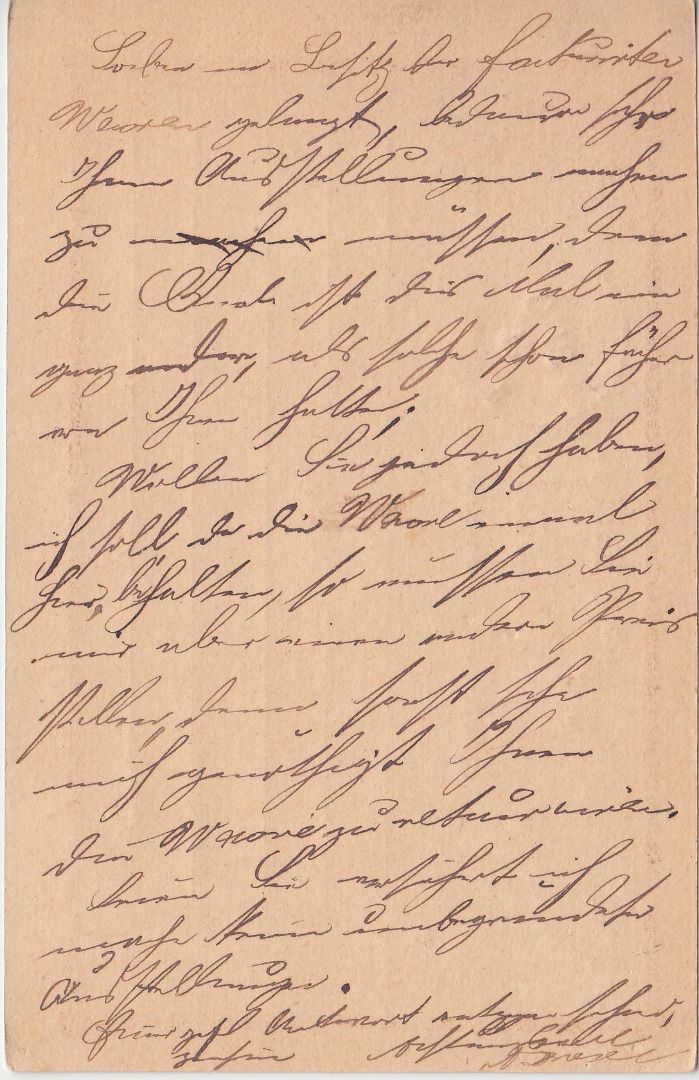 Soeben in Besitz der fakturirten
Waaren gelangt, bedaure sehr
Ihnen Ausstellungen machen
zu müssen, denn
die Qual. ist dies Mal eine
ganz andere, als solche schon früher
von Ihnen hatte.
Wollen Sie jedoch haben,
ich soll, da die Waare einmal
hier, behalten, so müssen Sie
mir aber einen andern Preis
stellen, denn sonst sehe
mich genöthigt Ihnen
die Waare zu retourniren.
Seien Sie versichert ich
mache keine unbegründete
Ausstellungen.
Ihrer gefl Antwort entgegen sehend,
zeichne Achtungsvoll